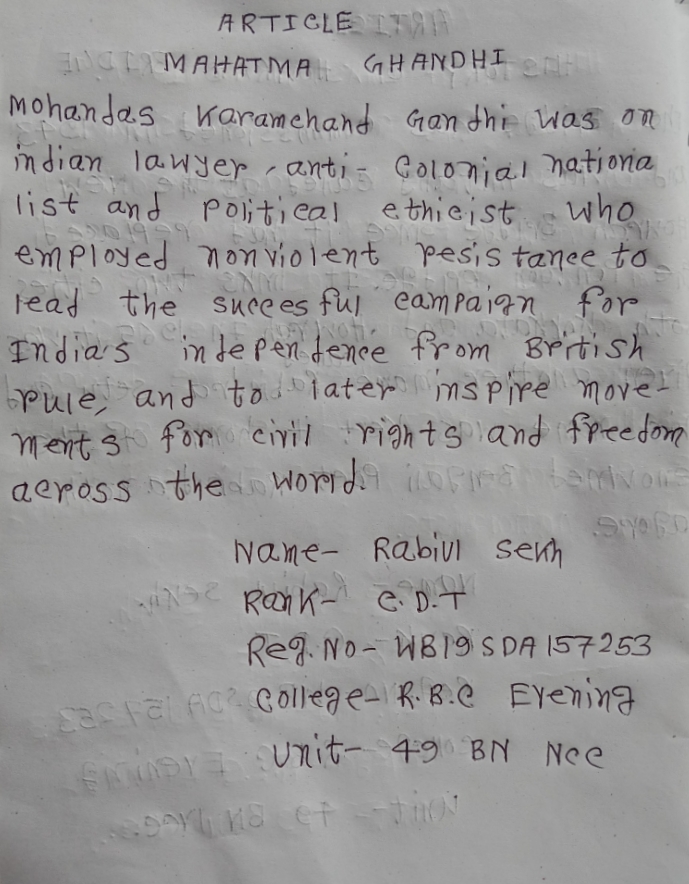 ARTICLE
MAHATMA GHANDHI
Mohandas Karamchand Gandhi was on
indian lawyer, anti- Colonial nationa
list and political ethicist who
employed nonviolent resistance to
lead the succes ful campaign for
India's independence from British
rule, and to later inspire move-
ments for civil rights and freedom
across the world.
Name- Rabiul Sekh
Rank- C.D.T
Reg. No- WB19SDA157253
College- R.B.C Evening
Unit- 49 BN Ncc